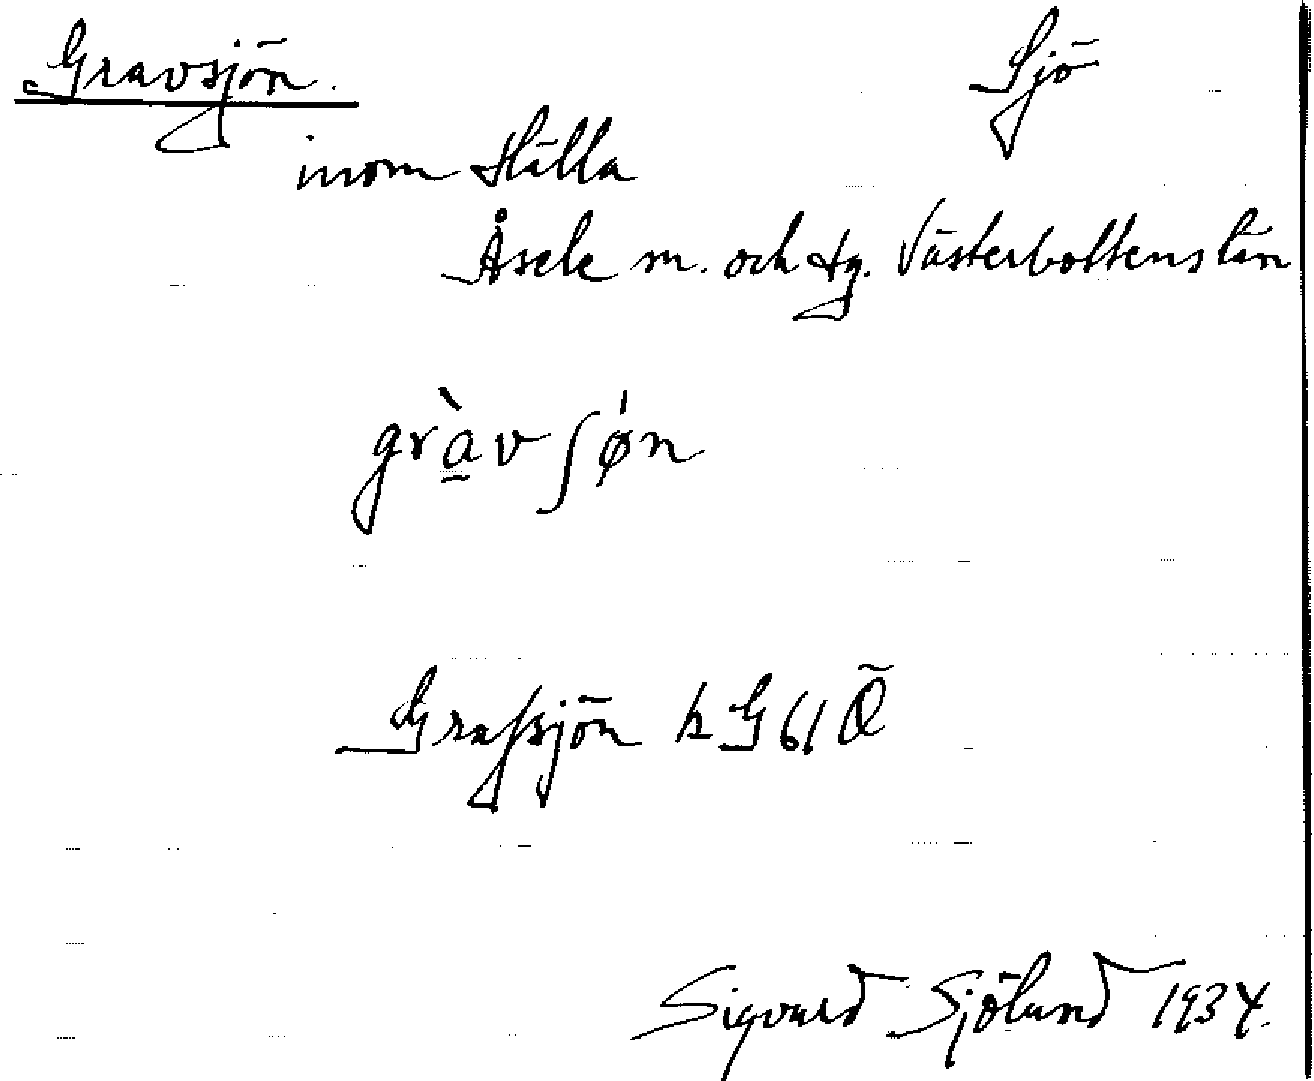 Gravsjön. Sjö
inom Hälla
Åsele sn. och tg. Västerbottens län
gràvʃøn
Grafsjön k G 61 Ö
Sigvard Sjölund 1934.